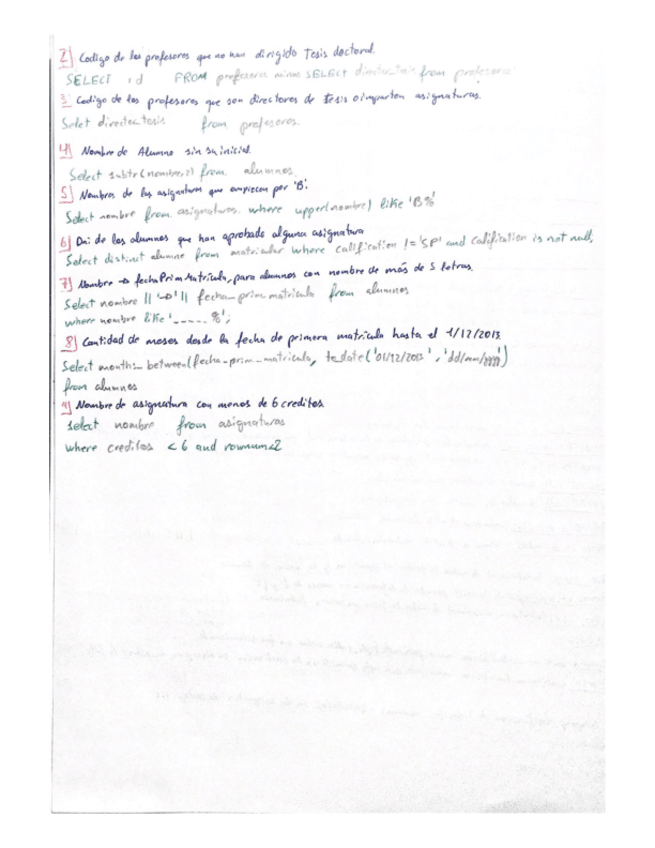 2] Codigo de los profesores que no han dirigido Tesis doctoral.
SELECT id FROM profesores minus SELECT director_tesis from profesores
3] Codigo de los profesores que son directores de tesis o imparten asignaturas.
Selet director_tesis from profesores.
4] Nombre de Alumno sin su inicial.
Select substr(nombre,2) from alumnos.
5] Nombres de las asignaturas que empiecen por 'B'.
Select nombre from asignaturas where upper(nombre) like 'B%'
6] Dni de los alumnos que han aprobado alguna asignatura
Select distinct alumno from matricular where calification != 'SP' and Calification is not null,
7] Nombre → fechaPrimMatricula, para alumnos con nombre de más de 5 letras.
Select nombre || '→' || fecha_prim_matricula from alumnos
where nombre like '_____%';
8] Cantidad de meses desde la fecha de primera matricula hasta el 1/12/2013.
Select months_between(fecha_prim_matricula, to_date('01/12/2013', 'dd/mm/yyyy')
from alumnos
9] Nombre de asignatura con menos de 6 creditos.
select nombre from asignaturas
where creditos < 6 and rownum<2